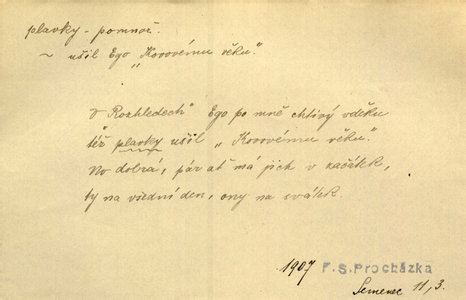 plavky - pomnož.
~ ušil Ego „Kovovému věku."
V „Rozhledech" Ego po mně chtivý vděku
též plavky ušil „Kovovému věku."
No dobrá, pár ať má jich v začátek,
ty na všední den, ony na svátek.
1907 F. S. Procházka
Semenec 11, 3.